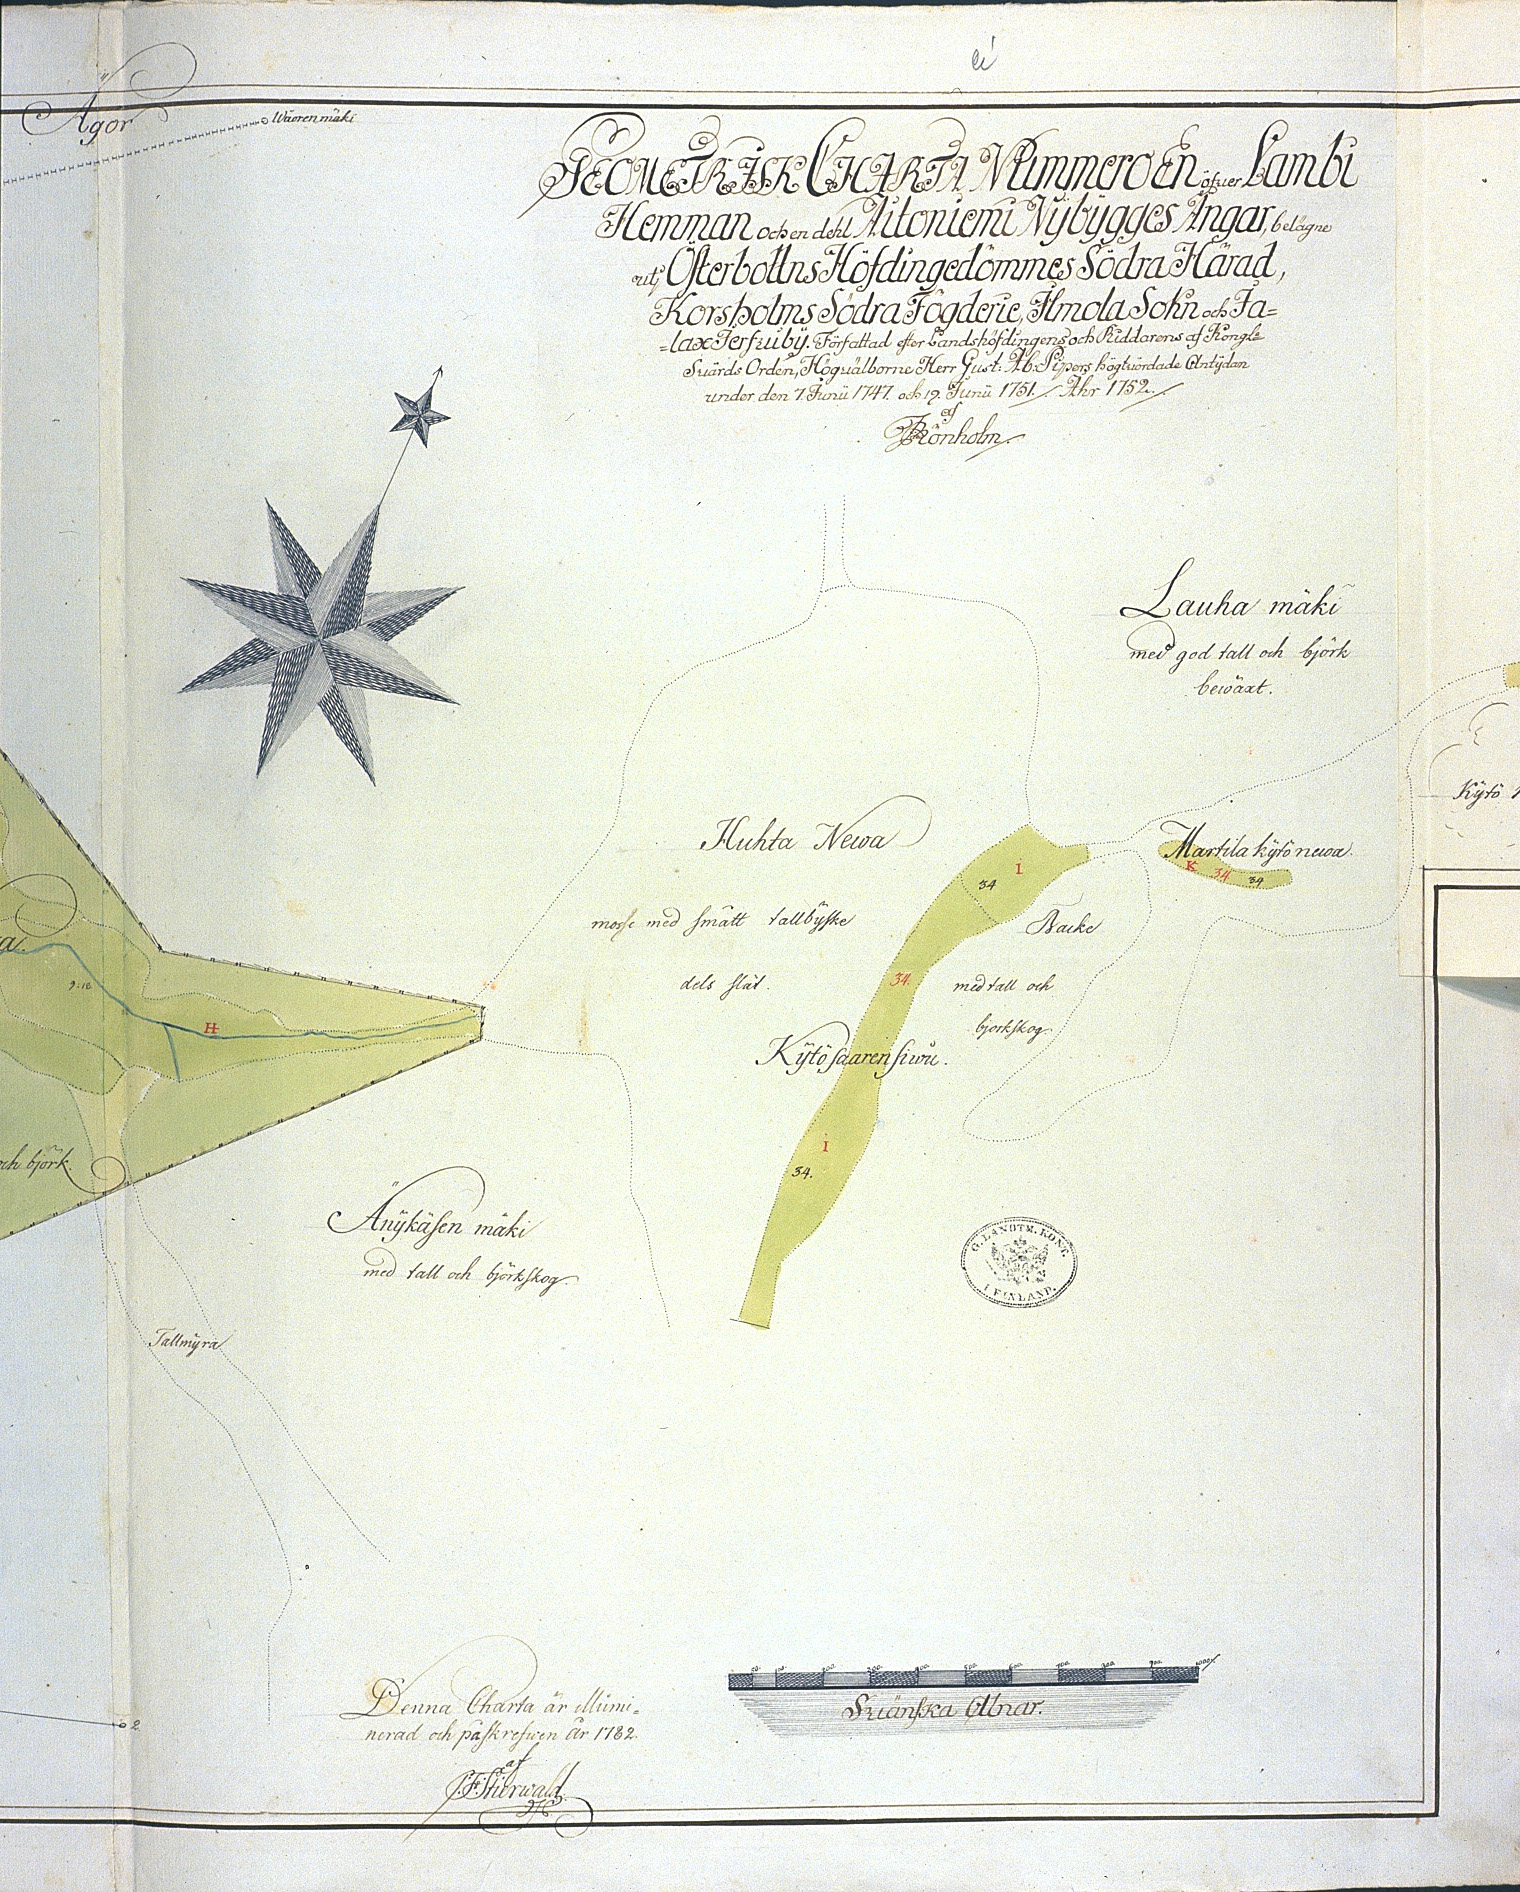 ei
Ägor
Wuorenmäki
GEOMETRISK CHARTA NUMMERO EN öfver Lambi
Hemman och en dehl Aitoniemi Nÿbÿgges Ängar, belägne
uti Österbottns Höfdingedömmes Södra Härad,
Korsholms Södra Fögderie, Ilmola Sokn och Ja=
=lax Jerfvubÿ. Författad efter Landshöfdingens och Riddarens af Kongl:
Svärds Orden, Högvälborne Herr Gust: Ab: Pipers högtvördade Antÿdan
under den 7. Junii 1747. och 19. Junii 1751. Åhr 1752.
af
Rönholm
Lauha mäki
med god tall och björk
bewäxt.
Kÿtö
Huhta Newa
Martila kÿtö newa.
I
34
K
34
34
mosse med smått tallbÿske
Backe
dels slät.
34.
med tall och
björkskog.
Kÿtösaaren siwu.
a.
9:18
H
I
34.
och björk.
Änÿkäsen mäki
med tall och björkskog.
G. LANDTM. KONT.
I FINLAND.
Tallmÿra
50. 100. 200. 300. 400. 500. 600. 700. 800. 900. 1000
Svänska Alnar.
Denna Charta är illumi=
nerad och påskrefwen år 1782.
af
Stierwald
2